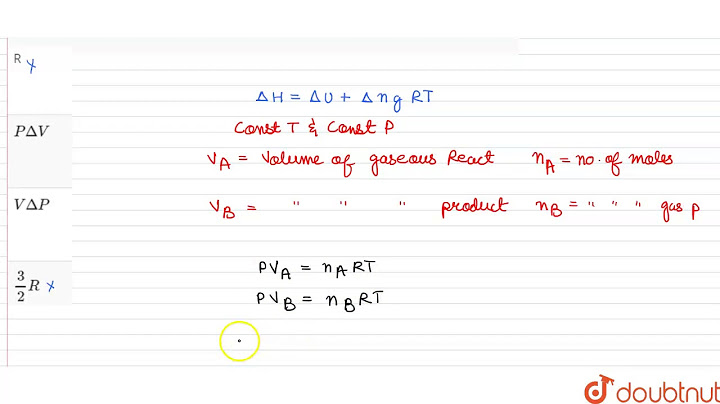 R x
ΔH = ΔU + Δng RT
Const T & Const P
PΔV
VA = Volume of gaseous React nA = no. of moles
VΔP
VB = " " " product nB = " " " gas p
3/2 R x
PVA = nART
PVB = nBRT
doubtnut